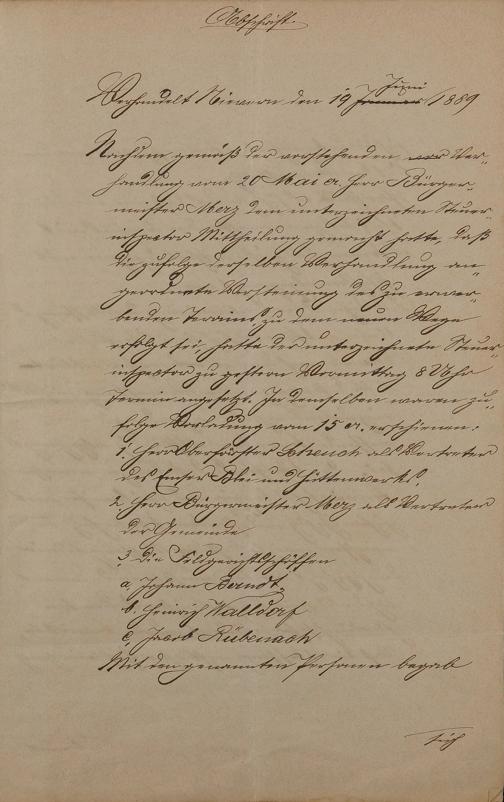 Abschrift.
Juni
Verhandelt Nievern den 19 Januar 1889
Nachdem gemäß der vorstehenden vor Ver-
handlung vom 20 Mai cr. Herr Bürger-
meister Merz dem unterzeichneten Steuer-
inspector Mittheilung gemacht hatte, daß
die zufolge derselben Verhandlung an-
geordnete Versteinung des zu erwer-
benden Terrains zu dem neuen Wege
erfolgt sei, hatte der unterzeichnete Steuer-
inspector zu gestern Vormittag 8 Uhr
Termin angesetzt. In demselben waren zu-
folge Vorladung vom 15 cr. erschienen:
1. Herr Oberförster Schench als Vertreter
des Emser Blei und Hüttenwerks,
2. Herr Bürgermeister Merz als Vertreter
der Gemeinde
3. die Feldgerichtsschöffen
a Johann Berndt.
b. Heinrich Walldorf
c. Jacob Rübenach
Mit den genannten Personen begab
sich